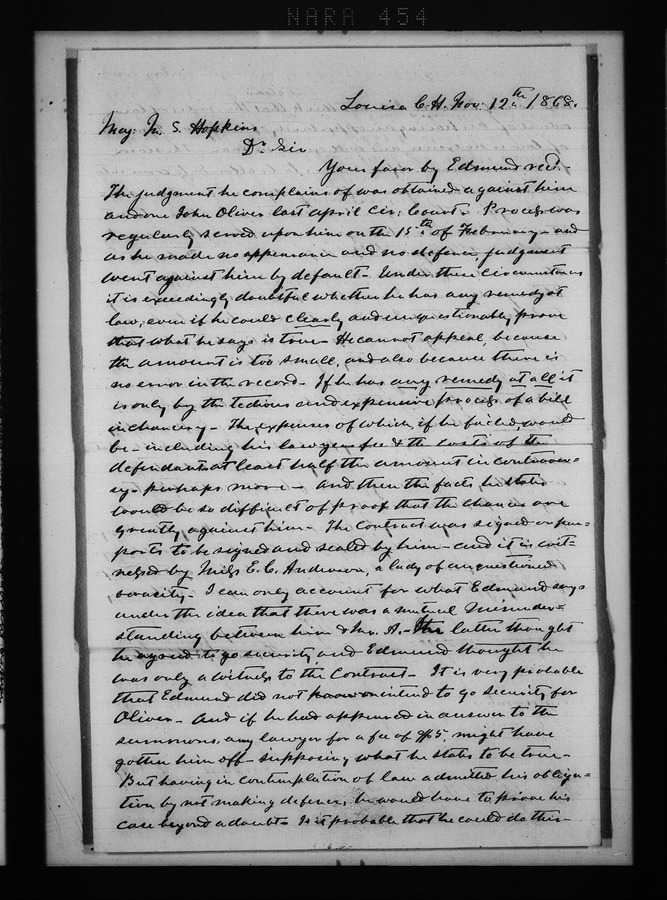 NARA 454
Louisa C. H. Nov: 12th 1868.
Maj: M. S. Hopkins
Dr Sir
Your favor by Edmund recd.
The judgment he complains of was obtained against him
and one John Oliver last april Cir: Court. Process was
regularly served upon him on the 15th of February - and
as he made no appearance and no defence, judgment
went against him by default - Under these circumstances
it is exceedingly doubtful whether he has any remedy at
law, even if he could clearly and unquestionably prove
that what he says is true - He cannot appeal, because
the amount is too small, and also because there is
no error in the record - If he has any remedy at all it
is only by the tedious and expensive process of a bill
in chancery - The expenses of which, if he failed would
be - including his lawyers fee & the costs of the
defendant at least half the amount in controver=
sy - perhaps more - and then the facts he states
would be so difficult of proof that the chances are
greatly against him - The Contract was signed or pur=
ports to be signed and sealed by him - and it is wit=
nessed by Miss E. C. Anderson, a lady of unquestioned
veracity - I can only account for what Edmund says
under the idea that there was a mutual misunder=
standing between him & Mr. A. - The latter thought
he agreed to go security and Edmund thought he
was only a witness to the Contract - It is very probable
that Edmund did not intend to go security for
Oliver - And if he had appeared in answer to the
summons, any lawyer for a fee of $5, might have
gotten him off - supposing what he states to be true -
But having in contemplation of law admitted his obliga=
tion by not making defence, he would have to prove his
case beyond a doubt - Is it probable that he could do this -